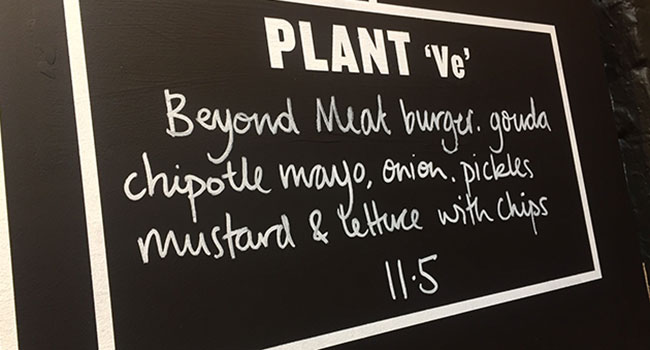 PLANT 'Ve'
Beyond Meat burger. gouda
chipotle mayo, onion. pickles
mustard & lettuce with chips
11.5